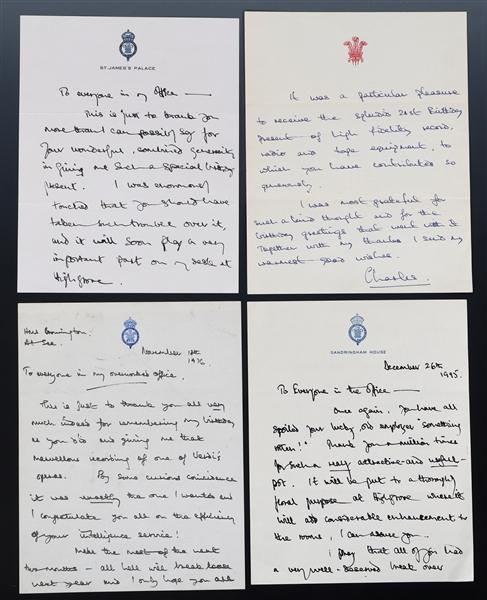 ST. JAMES'S PALACE
To everyone in my Office —
This is just to thank you
more than I can possibly say for
your wonderful, combined generosity
in giving me such a special birthday
present. I was enormously
touched that you should have
taken such trouble over it,
and it will soon play a very
important part on my desk at
Highgrove.
It was a particular pleasure
to receive the splendid 21st Birthday
present of high fidelity record,
radio and tape equipment, to
which you have contributed so
generously.
I was most grateful for
such a kind thought and for the
birthday greetings that went with it.
Together with my thanks I send my
warmest good wishes.
Charles.
HMS Bronington.
At Sea.
November 18th
1976
To everyone in my overworked office.
This is just to thank you all very
much indeed for remembering my birthday
as you did and giving me that
marvellous recording of one of Verdi's
operas. By some curious coincidence
it was exactly the one I wanted and
I congratulate you all on the efficiency
of your intelligence service!
Make the most of the next
two months - all hell will break loose
next year and I only hope you all
SANDRINGHAM HOUSE
December 26th
1995
To Everyone in the Office —
Once again, you have all
spoiled your lucky, old employer "something
rotten!" Thank you a million times
for such a very attractive and useful
pot. It will be put to a thoroughly
floral purpose at Highgrove where it
will add considerable enhancement to
the rooms, I can assure you.
I pray that all of you had
a very well-deserved break over